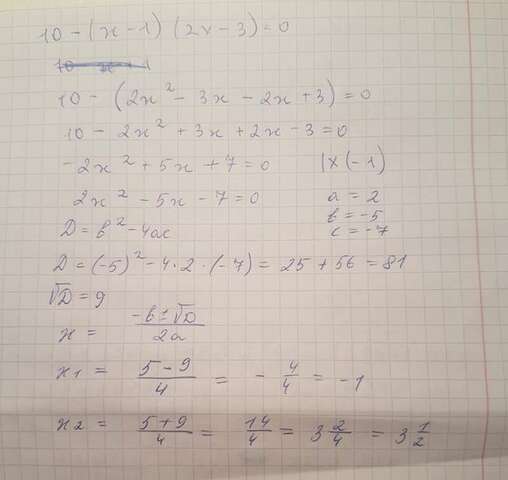 10 - (x - 1) (2x - 3) = 0
10 - (2x² - 3x - 2x + 3) = 0
10 - 2x² + 3x + 2x - 3 = 0
-2x² + 5x + 7 = 0 |x(-1)
2x² - 5x - 7 = 0 a = 2
b = -5
D = b² - 4ac c = -7
D = (-5)² - 4·2·(-7) = 25 + 56 = 81
√D = 9
x = (-b ± √D)/2a
x1 = (5 - 9)/4 = - 4/4 = -1
x2 = (5 + 9)/4 = 14/4 = 3 2/4 = 3 1/2